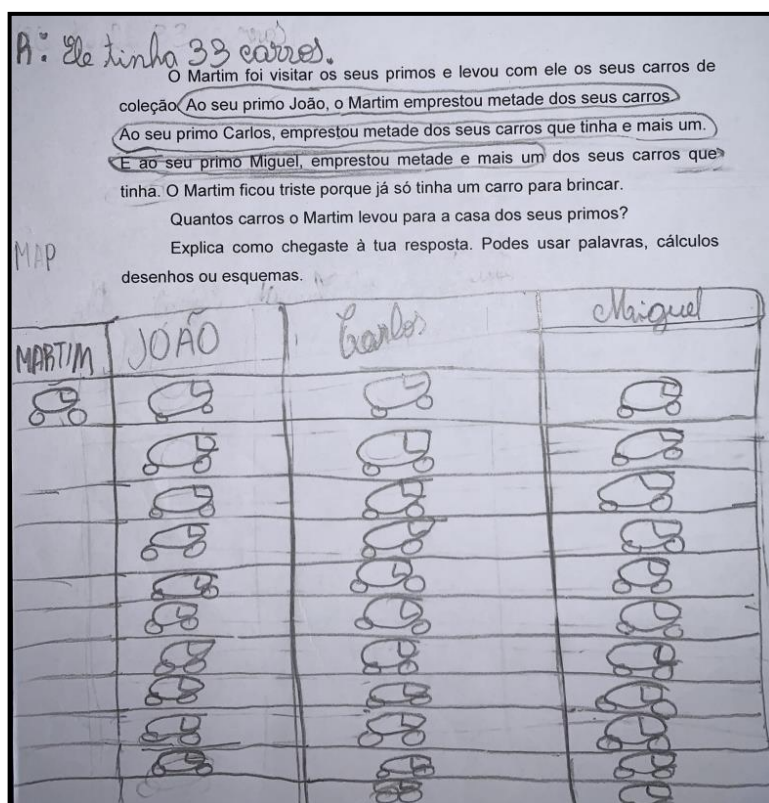 R: Ele tinha 33 carros.
O Martim foi visitar os seus primos e levou com ele os seus carros de
coleção. Ao seu primo João, o Martim emprestou metade dos seus carros.
Ao seu primo Carlos, emprestou metade dos seus carros que tinha e mais um.
E ao seu primo Miguel, emprestou metade e mais um dos seus carros que
tinha. O Martim ficou triste porque já só tinha um carro para brincar.
Quantos carros o Martim levou para a casa dos seus primos?
Explica como chegaste à tua resposta. Podes usar palavras, cálculos
desenhos ou esquemas.
MAP
MARTIM JOÃO Carlos Miguel